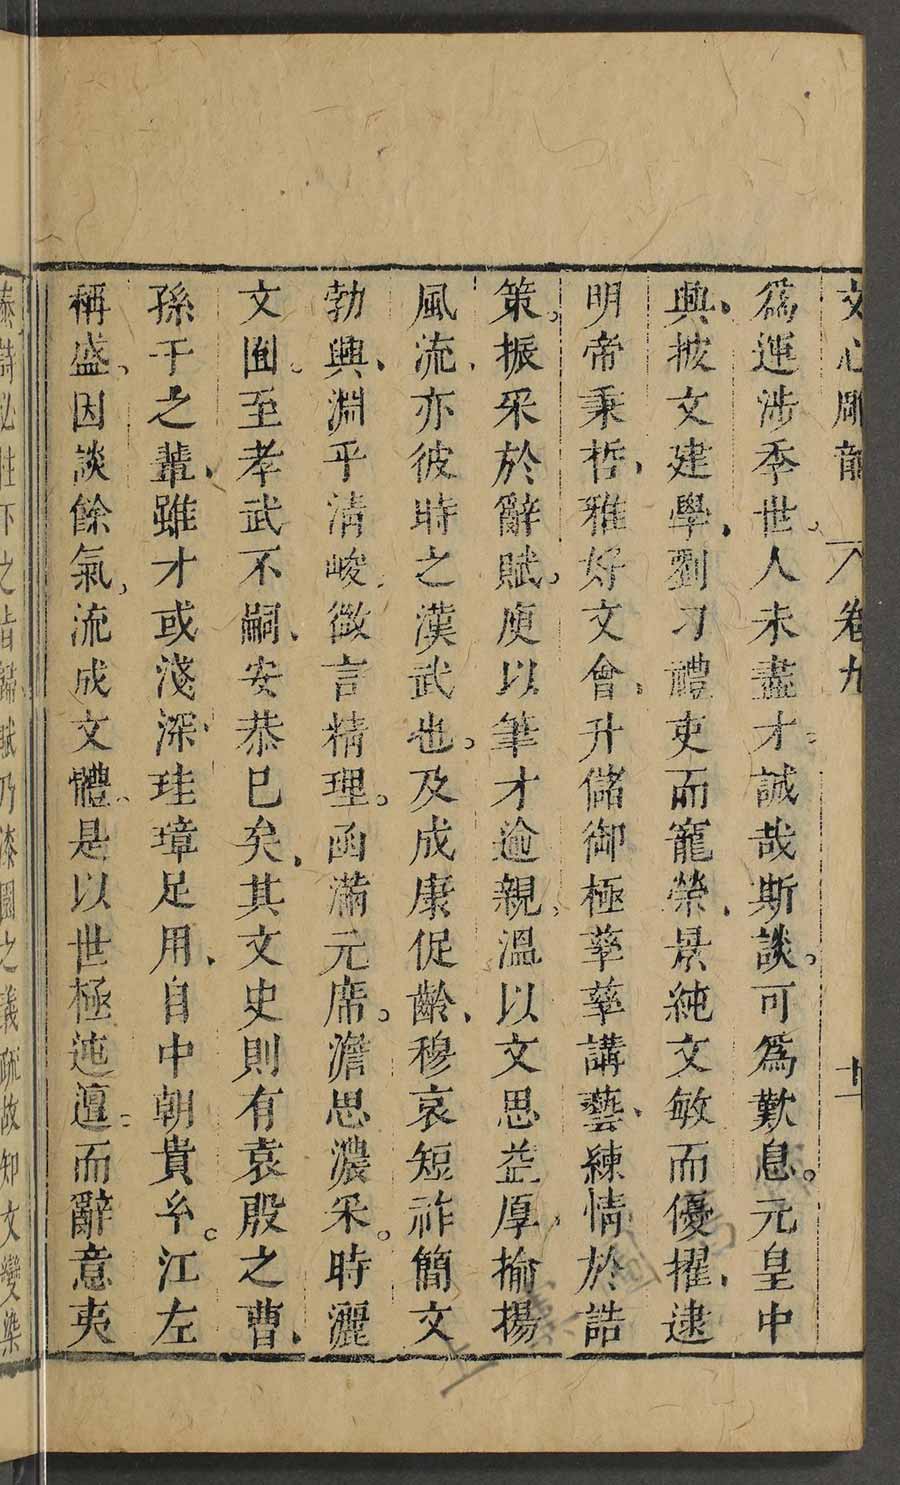 文心雕龍 卷九 十一
為運涉季世人未盡才誠哉斯談。可為歎息。元皇中
興、披文建學、劉刁禮吏而寵榮、景純文敏而優擢、逮
明帝秉哲、雅好文會、升儲御極孳孳講藝、練情於誥
策。振采於辭賦。庾以筆才逾親。溫以文思益厚、揄揚
風流、亦彼時之漢武也。及成康促齡、穆哀短祚簡文
勃興、淵乎清峻、微言精理。函滿元席。澹思濃采。時灑
文囿。至孝武不嗣、安恭巳矣、其文史則有袁殷之曹、
孫干之輩、雖才或淺深、珪璋足用、自中朝貴玄。江左
稱盛、因談餘氣、流成文體、是以世極迍邅、而辭意夷
泰詩必柱下之旨歸賦乃漆園之義疏故知文變染